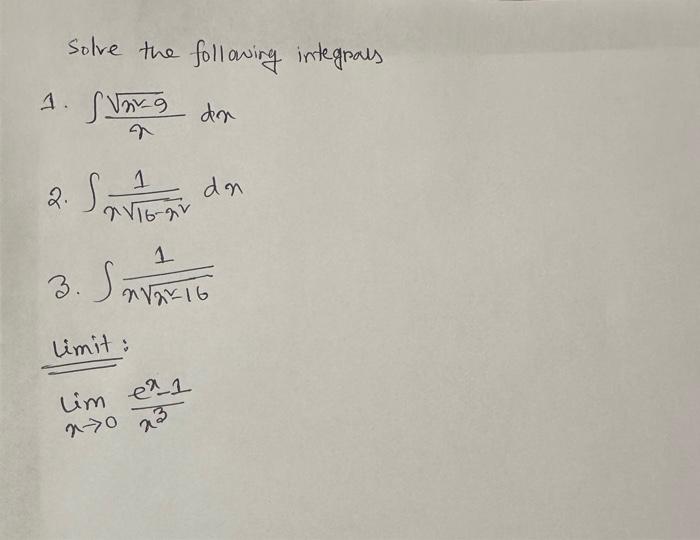 Solve the following integrals
1. ∫ √(x²-9) / x dx
2. ∫ 1 / (x√(16-x²)) dx
3. ∫ 1 / (x√(x²-16))
Limit:
lim x→0 (e^x - 1) / x³